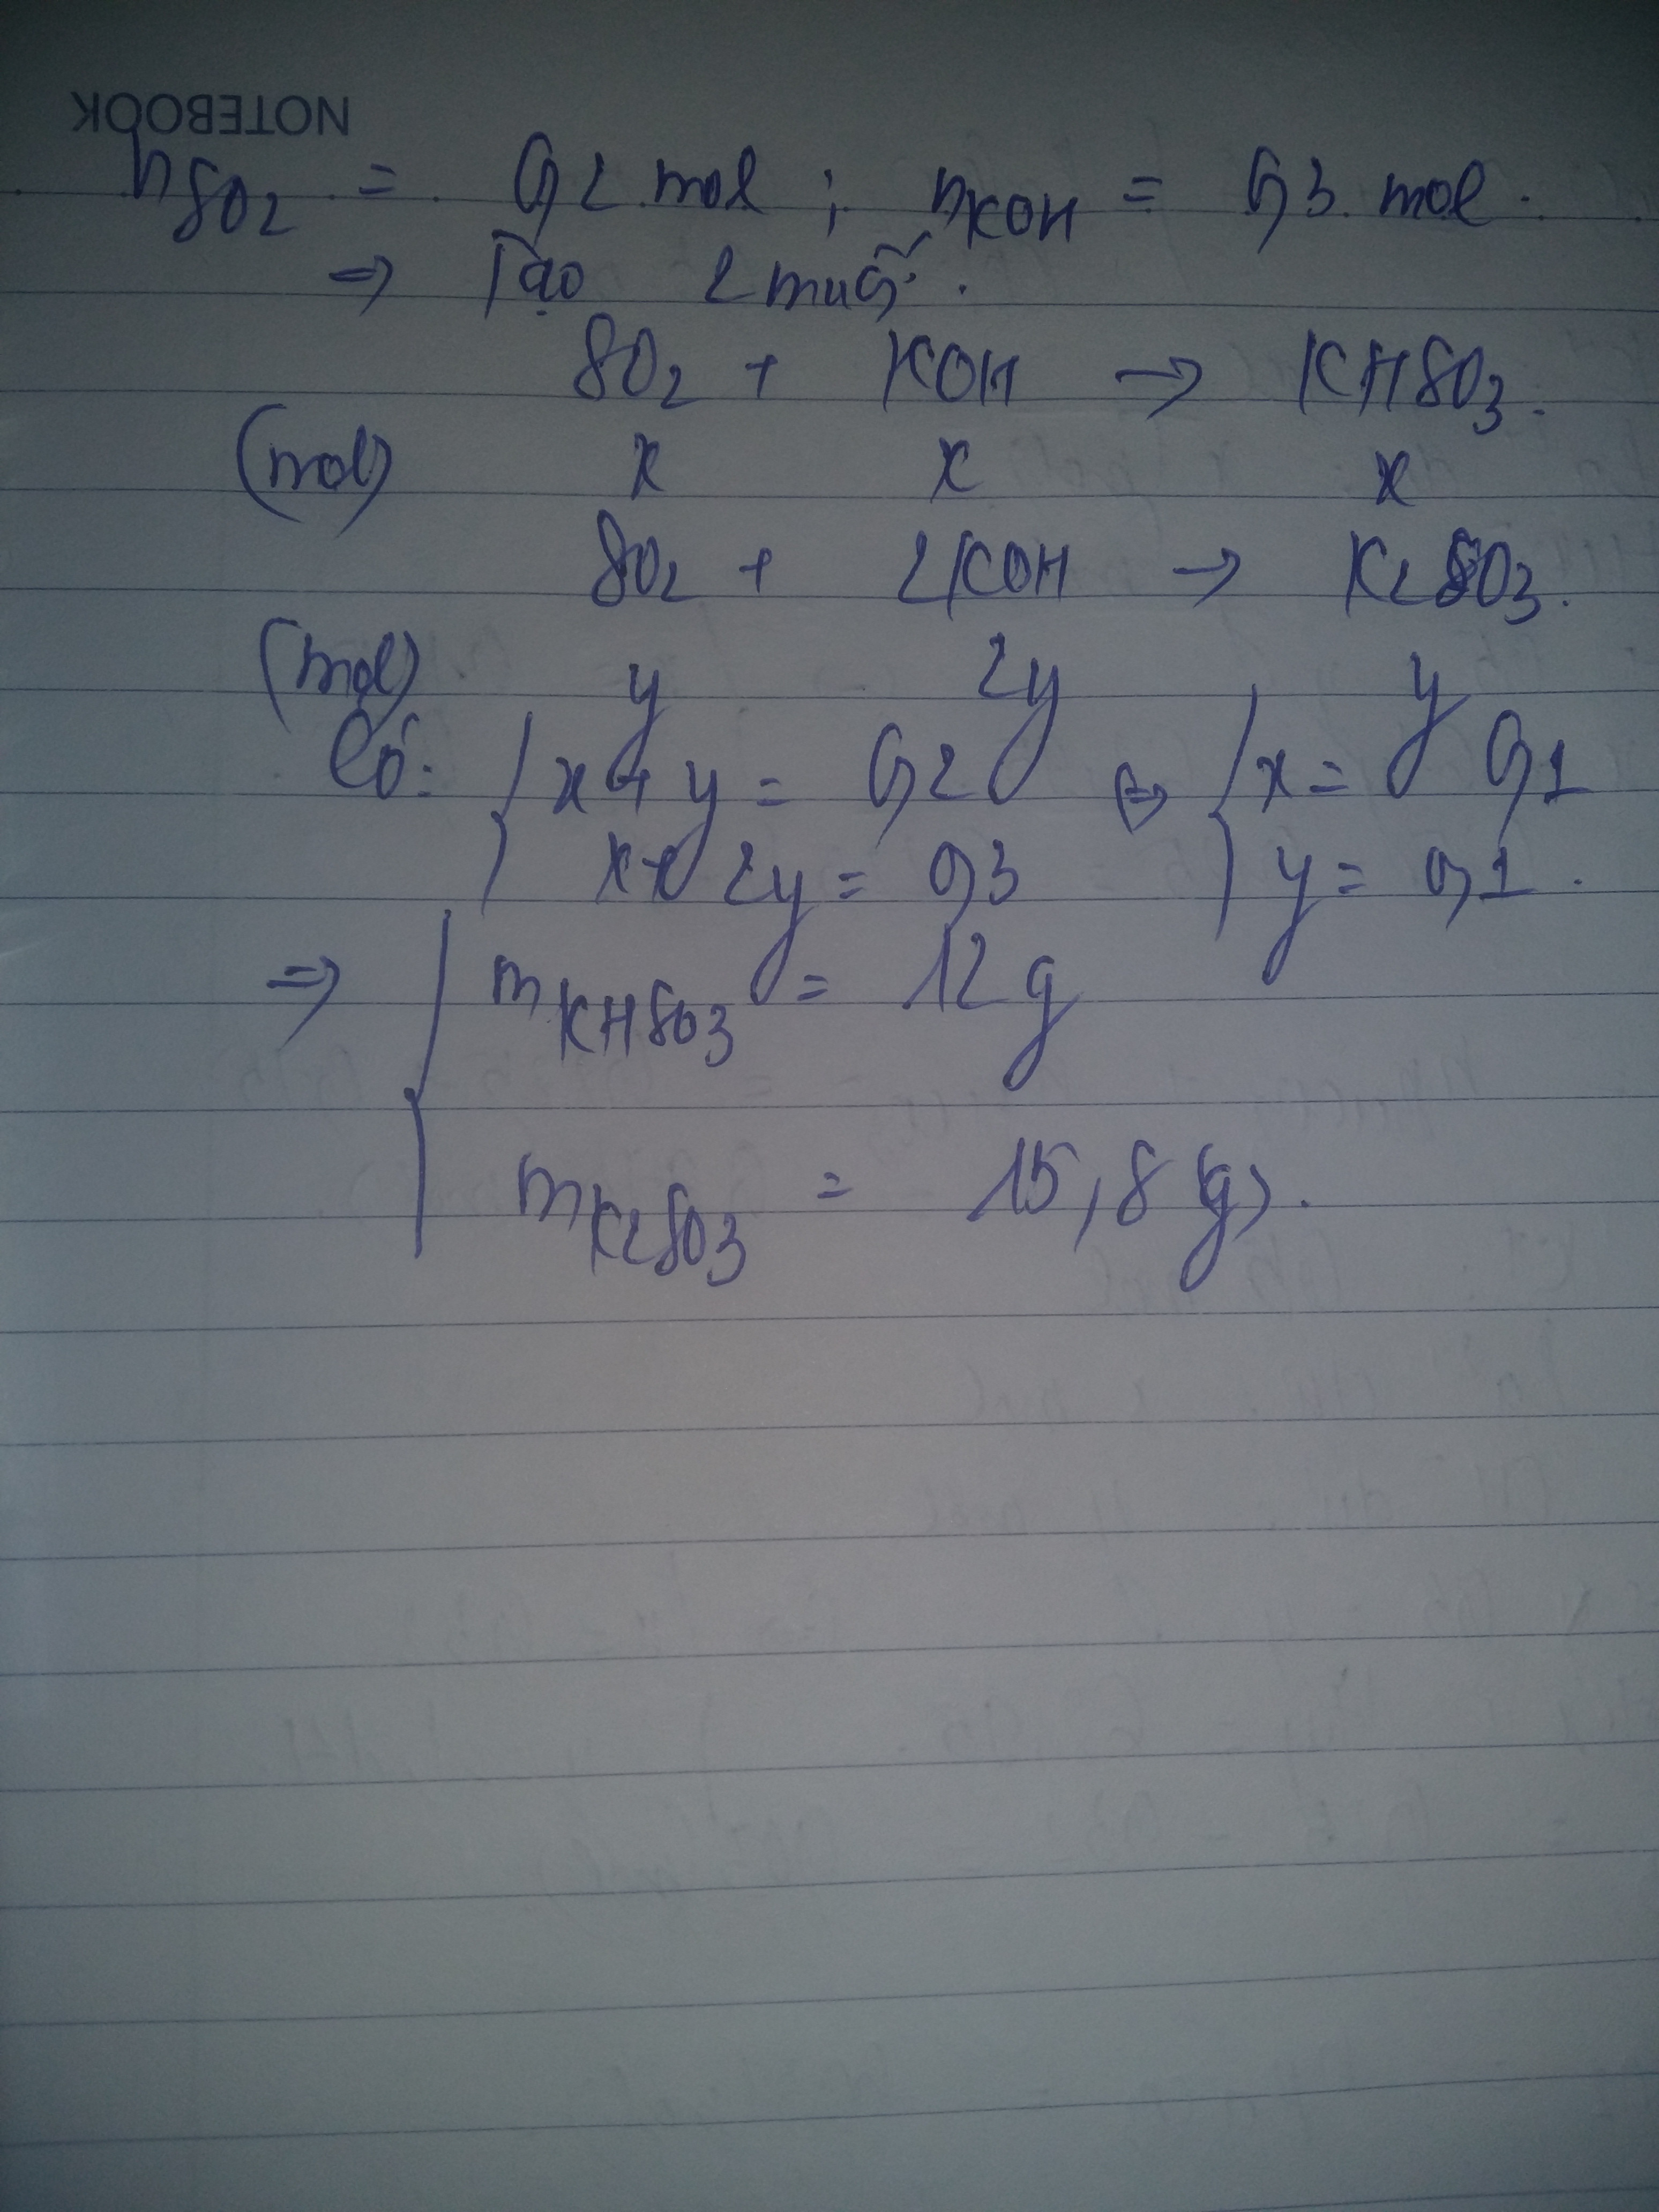 NOTEBOOK
nSO2 = 0,2 mol ; nKOH = 0,3 mol.
⇒ Tạo 2 muối.
SO2 + KOH → KHSO3.
(mol) x x x
SO2 + 2KOH → K2SO3.
(mol) y 2y y
Có: { x + y = 0,2 ⇔ { x = 0,1
x + 2y = 0,3 y = 0,1.
⇒ { mKHSO3 = 12 g
mK2SO3 = 15,8 (g).